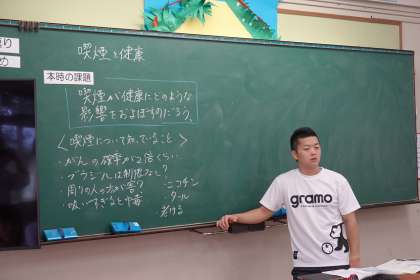 喫煙と健康
本時の課題
喫煙が健康にどのような
影響をおよぼすのだろう。
<喫煙について知っていること>
・がんの確率が2倍くらい
・ダウンルは制限なし?
・周りの人の方が害?
・吸いすぎると中毒
・ニコチン
・タール
・老ける
gramo